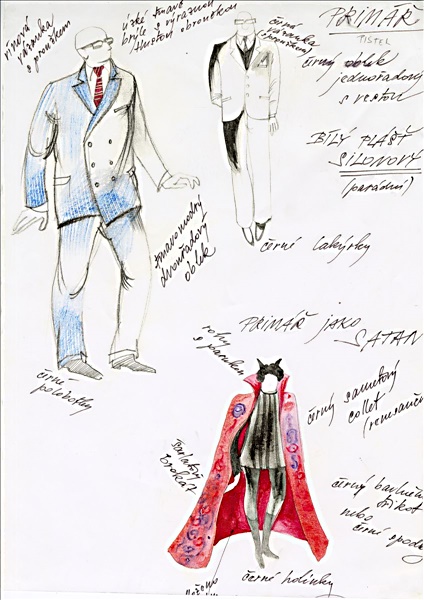 vínová
vázanka
s proužkem
úzké tmavé
brýle s výraznou
tmavou obroučkou
černá
vázanka
s proužkem
PRIMÁŘ
TISTEL
černý oblek
jednořadový
s vestou
BÍLÝ PLÁŠŤ
SILONOVÝ
(parádní)
tmavomodrý
dvouřadový
oblek
černé lakýrky
černé
polobotky
PRIMÁŘ JAKO
SATAN
rohy
s parukou
černý sametový
collet
šarlatový
brokát
černý bavlněný
trikot
nebo
černé spodky
černé holínky